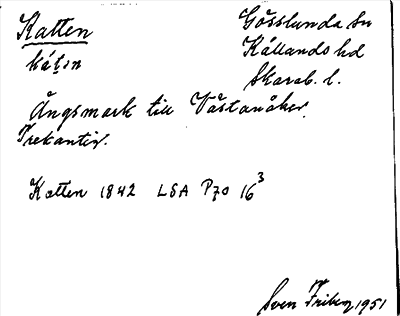 Katten
Gösslunda sn
Kållands hd
Skarab. l.
kát̠in
Ängsmark till Västanåker.
Trekantig.
Katten 1842 LSA P70 16³
Sven Friberg 1951